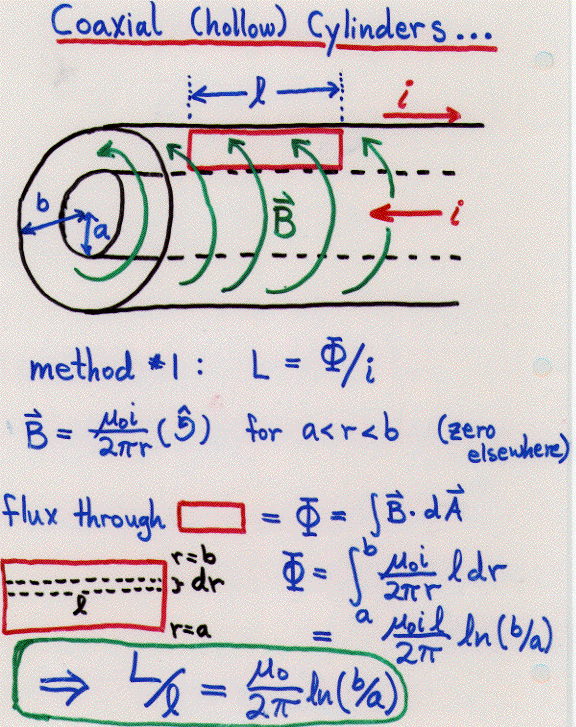 Coaxial (hollow) Cylinders...
l
i
b
a
B⃗
i
method #1: L = Φ/i
B⃗ = μ₀i/2πr (↺̂) for a<r<b (zero elsewhere)
flux through ▭ = Φ = ∫B⃗·dA⃗
r=b
dr
l
r=a
Φ = ∫ₐᵇ μ₀i/2πr l dr
= μ₀il/2π ln(b/a)
⇒ L/l = μ₀/2π ln(b/a)